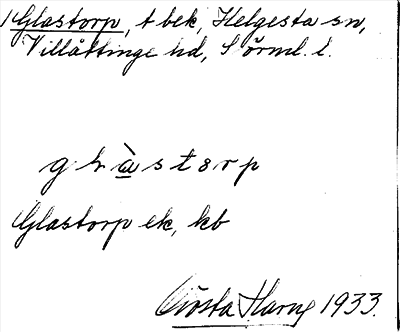 Glastorp, t bek, Helgesta sn,
Villåttinge hd, Sörml. l.
g l à s t o r p
Glastorp ek, kb
Gösta Harng 1933.